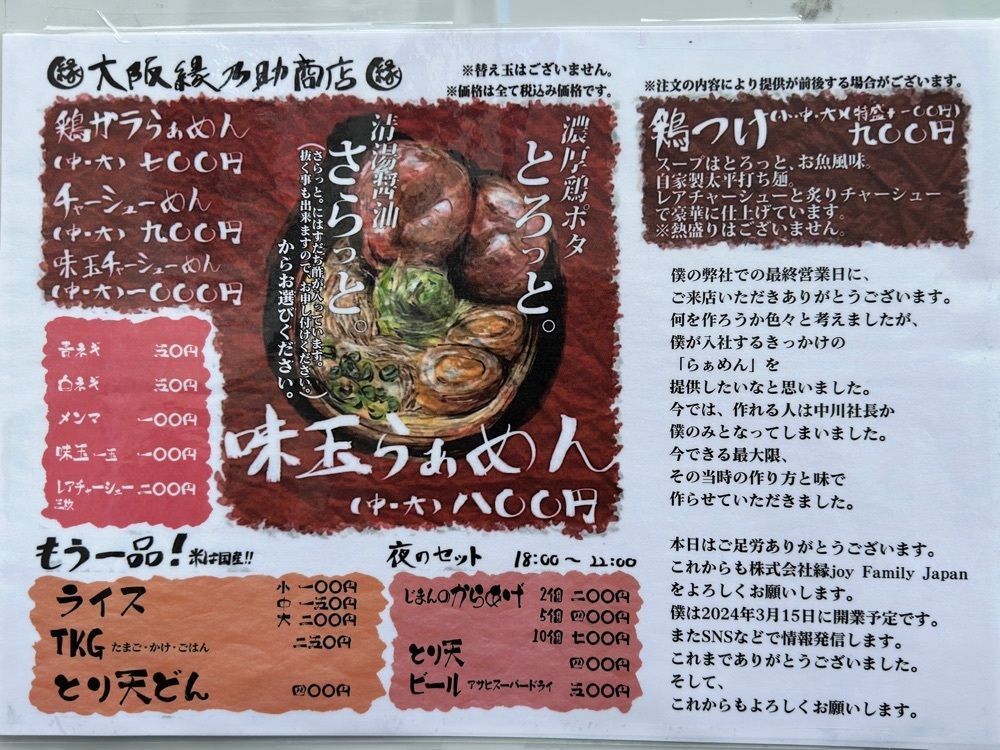 縁 大阪縁乃助商店 縁
※替え玉はございません。
※価格は全て税込み価格です。
鶏ガラらぁめん
(中・大) 七〇〇円
チャーシューめん
(中・大) 九〇〇円
味玉チャーシューめん
(中・大) 一〇〇〇円
濃厚鶏ポタ
とろっと。
清湯醤油
さらっと。
(さらっと。にはすだち酢が入っています。
抜く事も出来ますので、お申し付けください。)
からお選びください。
味玉らぁめん
(中・大) 八〇〇円
青ネギ 五〇円
白ネギ 五〇円
メンマ 一〇〇円
味玉 一玉 一〇〇円
レアチャーシュー 二〇〇円
三枚
※注文の内容により提供が前後する場合がございます。
鶏つけ (小・中・大) (特盛+一〇〇円)
九〇〇円
スープはとろっと、お魚風味。
自家製太平打ち麺。
レアチャーシューと炙りチャーシュー
で豪華に仕上げています。
※熱盛りはございません。
僕の弊社での最終営業日に、
ご来店いただきありがとうございます。
何を作ろうか色々と考えましたが、
僕が入社するきっかけの
「らぁめん」を
提供したいなと思いました。
今では、作れる人は中川社長か
僕のみとなってしまいました。
今できる最大限、
その当時の作り方と味で
作らせていただきました。
本日はご足労ありがとうございます。
これからも株式会社縁joy Family Japan
をよろしくお願いします。
僕は2024年3月15日に開業予定です。
またSNSなどで情報発信します。
これまでありがとうございました。
そして、
これからもよろしくお願いします。
もう一品! 米は国産!!
ライス 小 一〇〇円
中 一五〇円
大 二〇〇円
TKG たまご・かけ・ごはん 二五〇円
とり天どん 四〇〇円
夜のセット 18:00〜22:00
じまんのからあげ 2個 二〇〇円
5個 四〇〇円
10個 七〇〇円
とり天 四〇〇円
ビール アサヒスーパードライ 五〇〇円